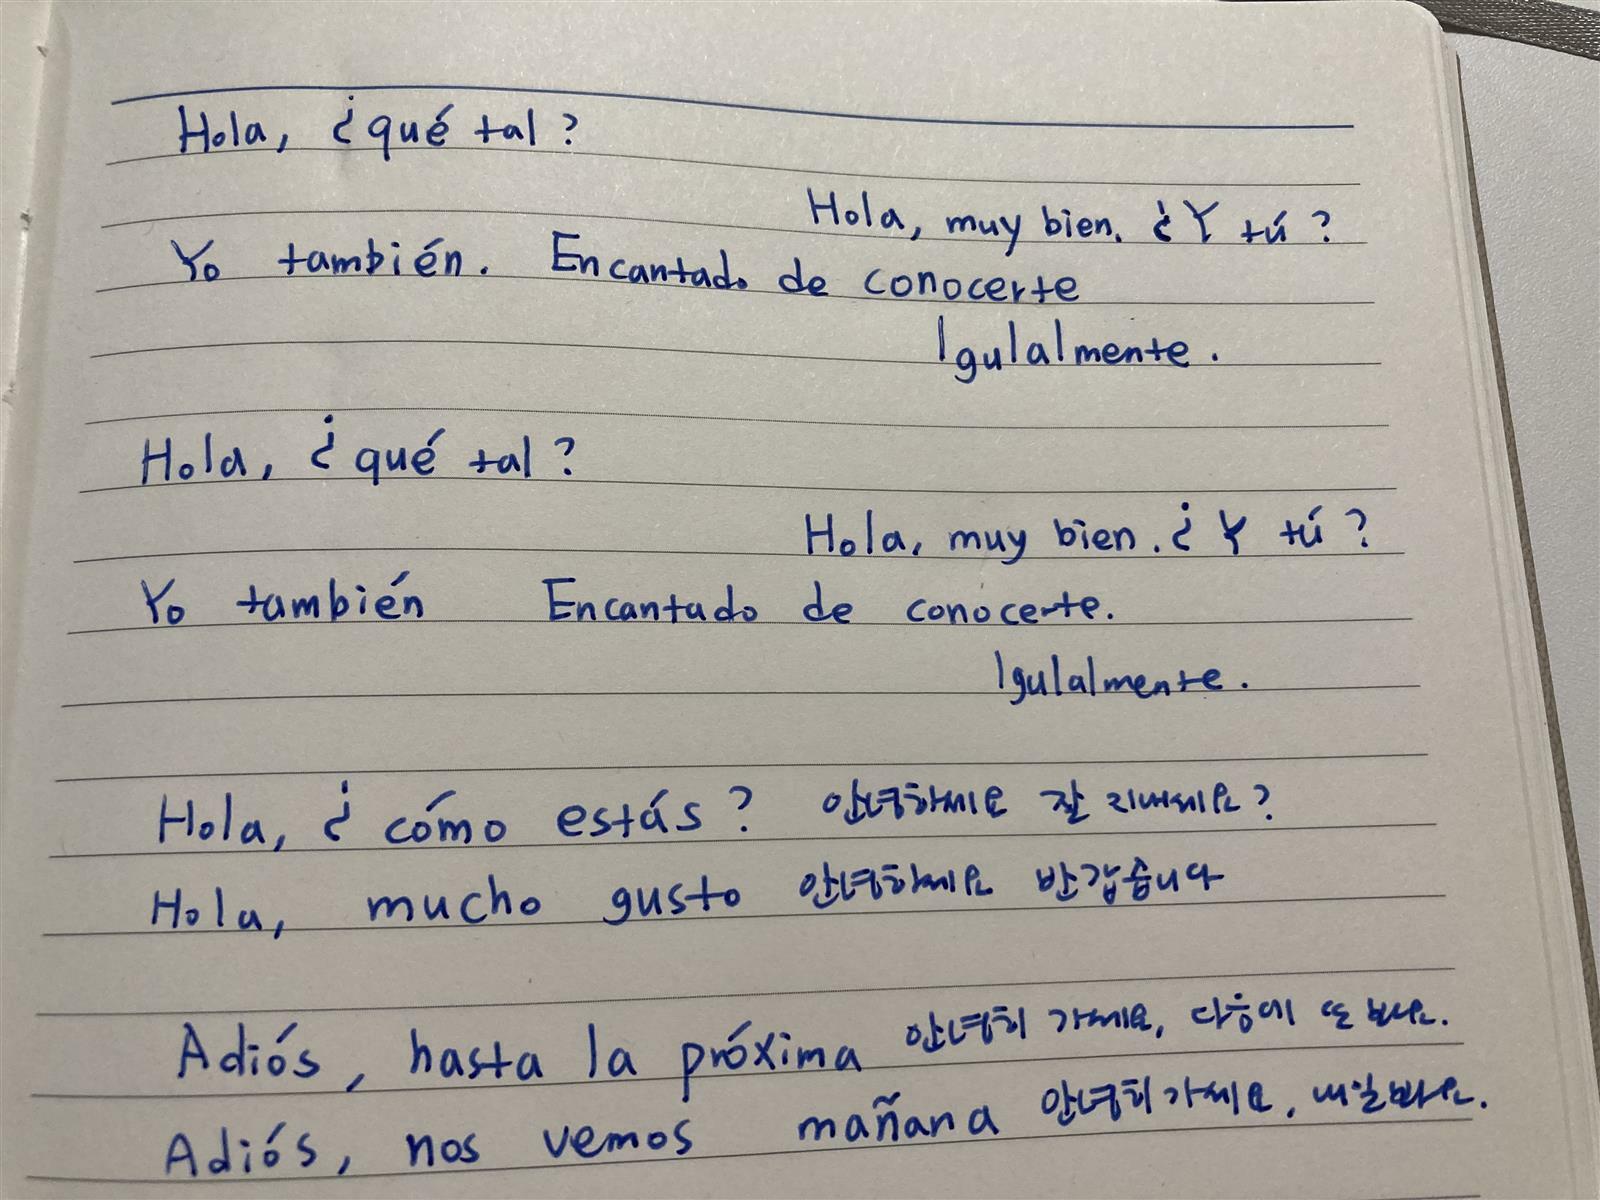 Hola, ¿qué tal?
Hola, muy bien. ¿Y tú?
Yo también. Encantado de conocerte
Igulalmente.
Hola, ¿qué tal?
Hola, muy bien. ¿Y tú?
Yo también Encantado de conocerte.
Igulalmente.
Hola, ¿cómo estás? 안녕하세요 잘 지내세요?
Hola, mucho gusto 안녕하세요 반갑습니다
Adiós, hasta la próxima 안녕히 가세요, 다음에 또 봐요.
Adiós, nos vemos mañana 안녕히 가세요, 내일 봐요.